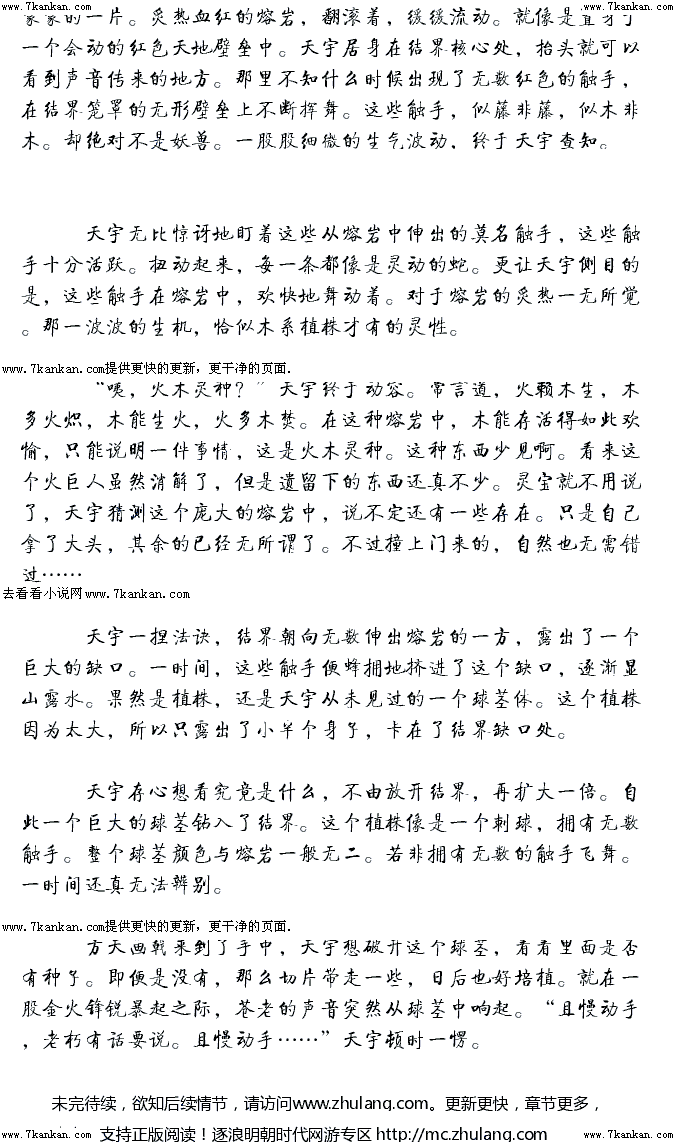 www.7kankan.com www.7kankan.com
的一片。炙热血红的熔岩，翻滚着，缓缓流动。就像是置身于
一个会动的红色天地壁垒中。天宇居身在结界核心处，抬头就可以
看到声音传来的地方。那里不知什么时候出现了无数红色的触手，
在结界笼罩的无形壁垒上不断挥舞。这些触手，似藤非藤，似木非
木。却绝对不是妖兽。一股股细微的生气波动，终于天宇查知。
天宇无比惊讶地盯着这些从熔岩中伸出的莫名触手，这些触
手十分活跃。扭动起来，每一条都像是灵动的蛇。更让天宇侧目的
是，这些触手在熔岩中，欢快地舞动着。对于熔岩的炙热一无所觉
。那一波波的生机，恰似木系植株才有的灵性。
www.7kankan.com提供更快的更新，更干净的页面．
“咦，火木灵种？”天宇终于动容。常言道，火赖木生，木
多火炽，木能生火，火多木焚。在这种熔岩中，木能存活得如此欢
愉，只能说明一件事情，这是火木灵种。这种东西少见啊。看来这
个火巨人虽然消解了，但是遗留下的东西还真不少。灵宝就不用说
了，天宇猜测这个庞大的熔岩中，说不定还有一些存在。只是自己
拿了大头，其余的已经无所谓了。不过撞上门来的，自然也无需错
过……
去看看小说网www.7kankan.com
天宇一捏法诀，结界朝向无数伸出熔岩的一方，露出了一个
巨大的缺口。一时间，这些触手便蜂拥地挤进了这个缺口，逐渐显
山露水。果然是植株，还是天宇从未见过的一个球茎体。这个植株
因为太大，所以只露出了小半个身子，卡在了结界缺口处。
天宇存心想看究竟是什么，不由放开结界，再扩大一倍。自
此一个巨大的球茎钻入了结界。这个植株像是一个刺球，拥有无数
触手。整个球茎颜色与熔岩一般无二。若非拥有无数的触手飞舞。
一时间还真无法辨别。
www.7kankan.com提供更快的更新，更干净的页面．
方天画戟来到了手中，天宇想破开这个球茎，看看里面是否
有种子。即便是没有，那么切片带走一些，日后也好培植。就在一
股金火锋锐暴起之际，苍老的声音突然从球茎中响起。“且慢动手
，老朽有话要说。且慢动手……”天宇顿时一愣。
未完待续，欲知后续情节，请访问www.zhulang.com。更新更快，章节更多，
www.7kankan.com 支持正版阅读！逐浪明朝时代网游专区 http://mc.zhulang.com/ www.7kankan.com